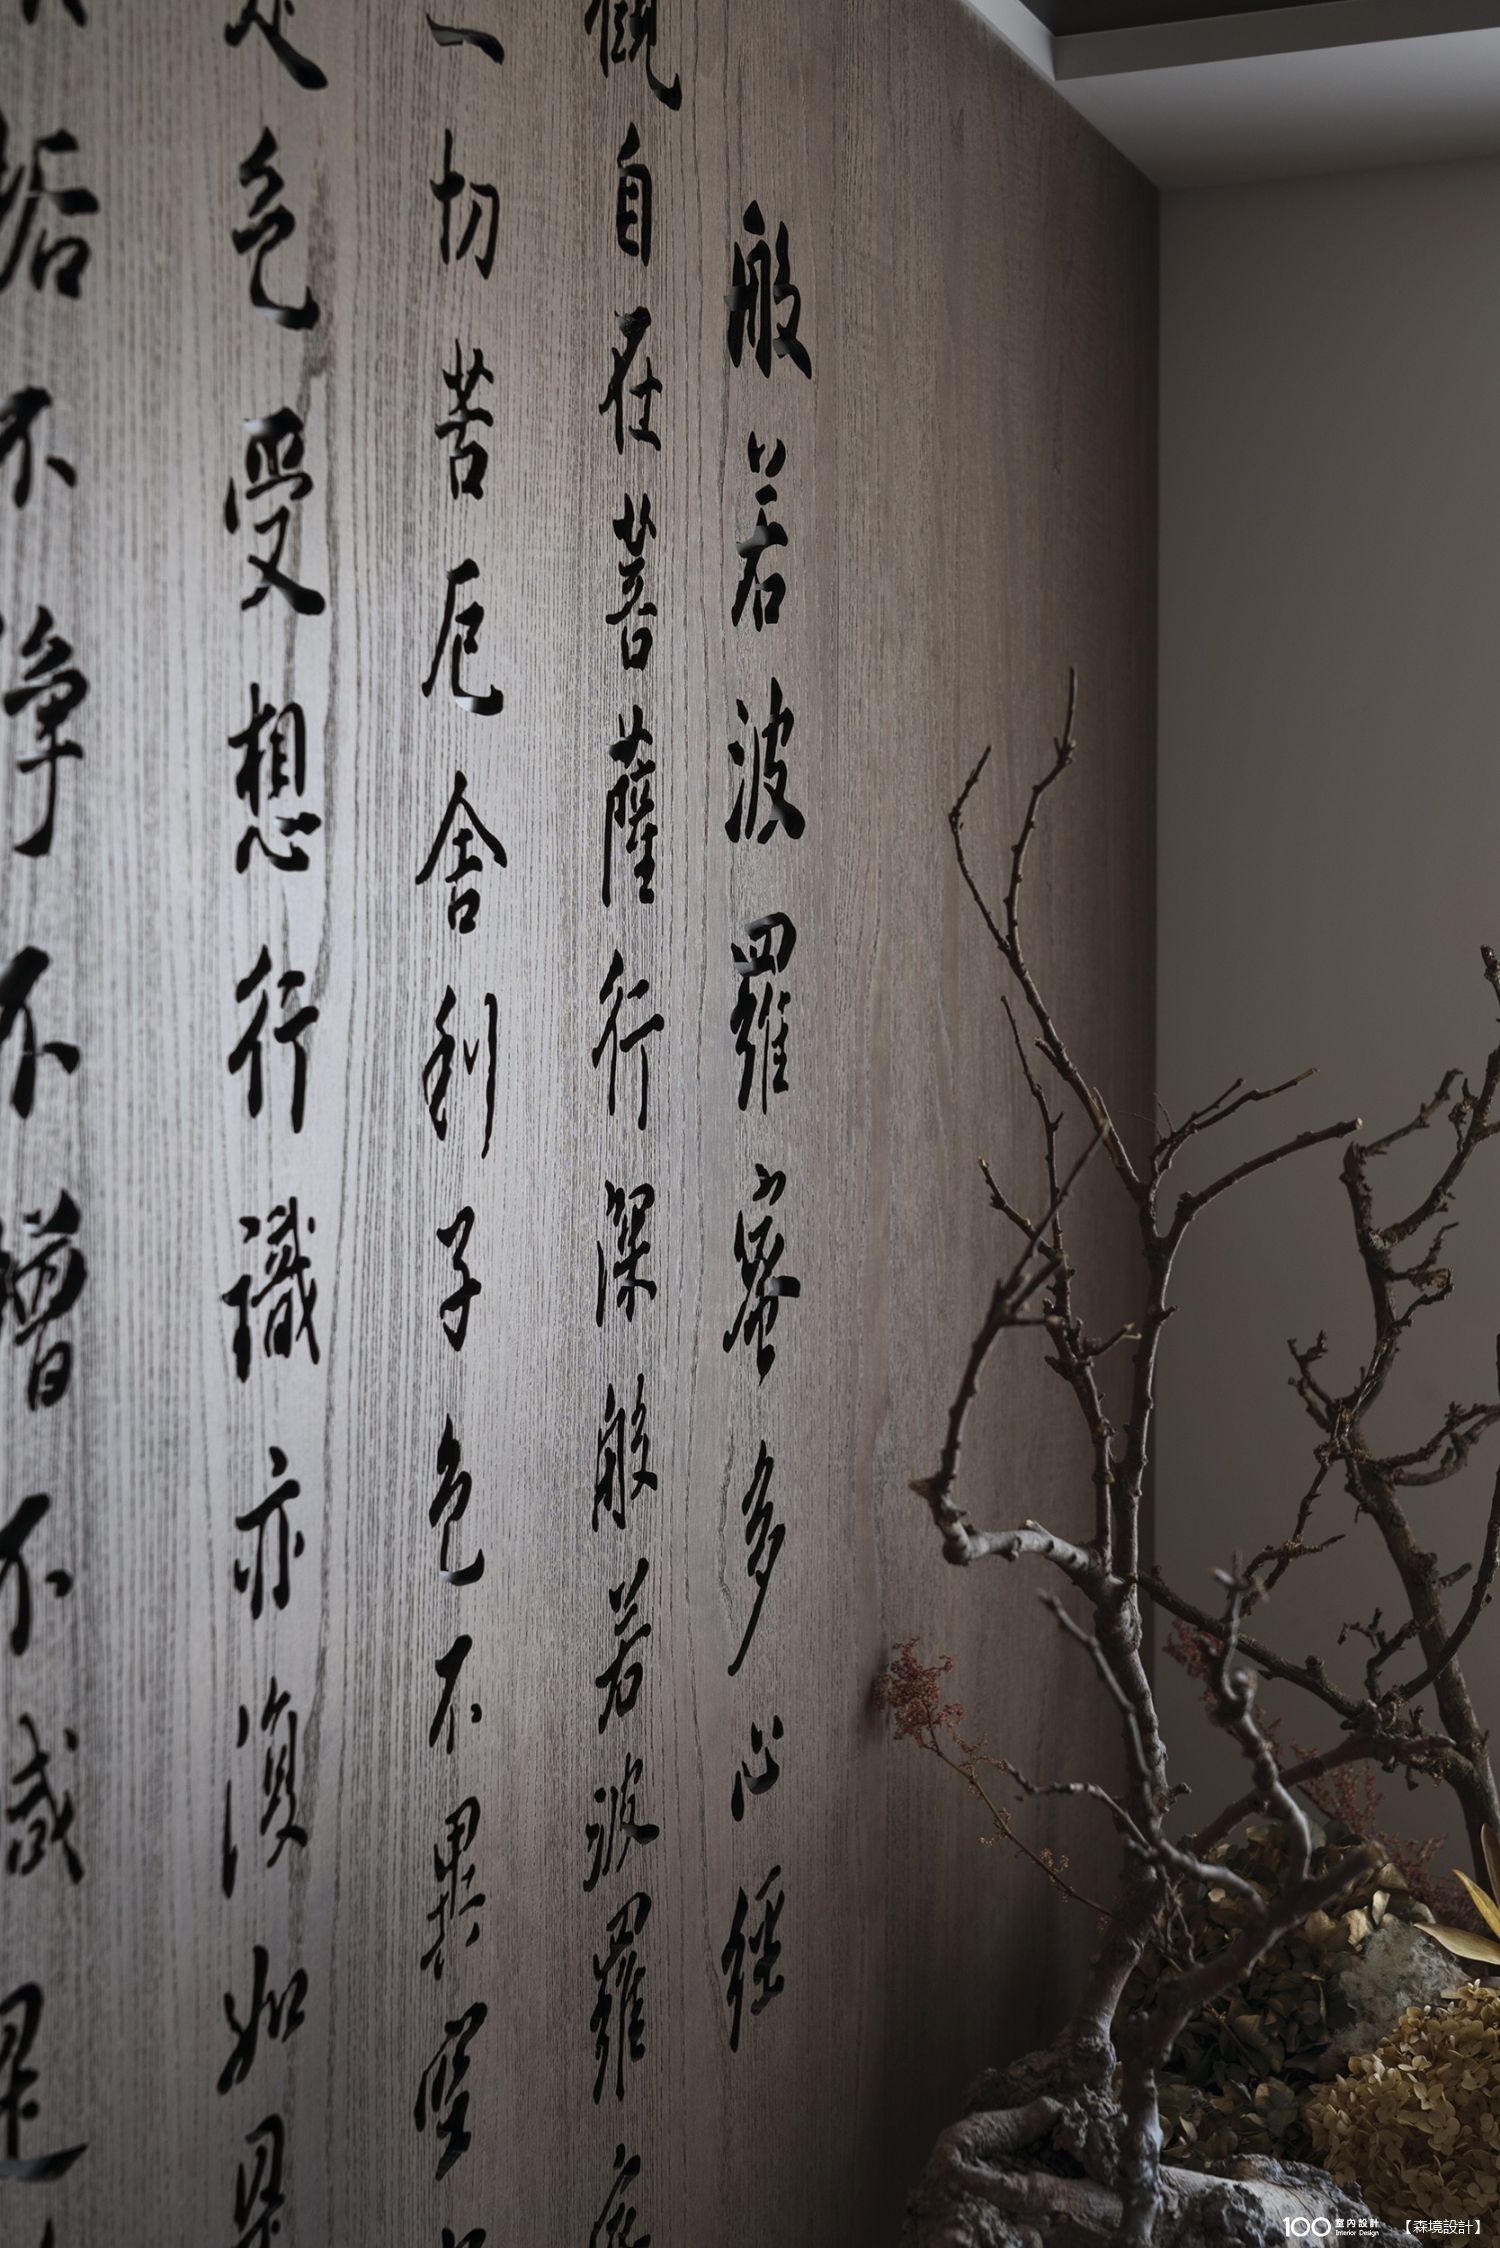 般若波羅蜜多心經
觀自在菩薩行深般若波羅
一切苦厄舍利子色不異空
色受想行識亦復如是
垢不淨不增不減是
100 室內設計 Interior Design 【森境設計】